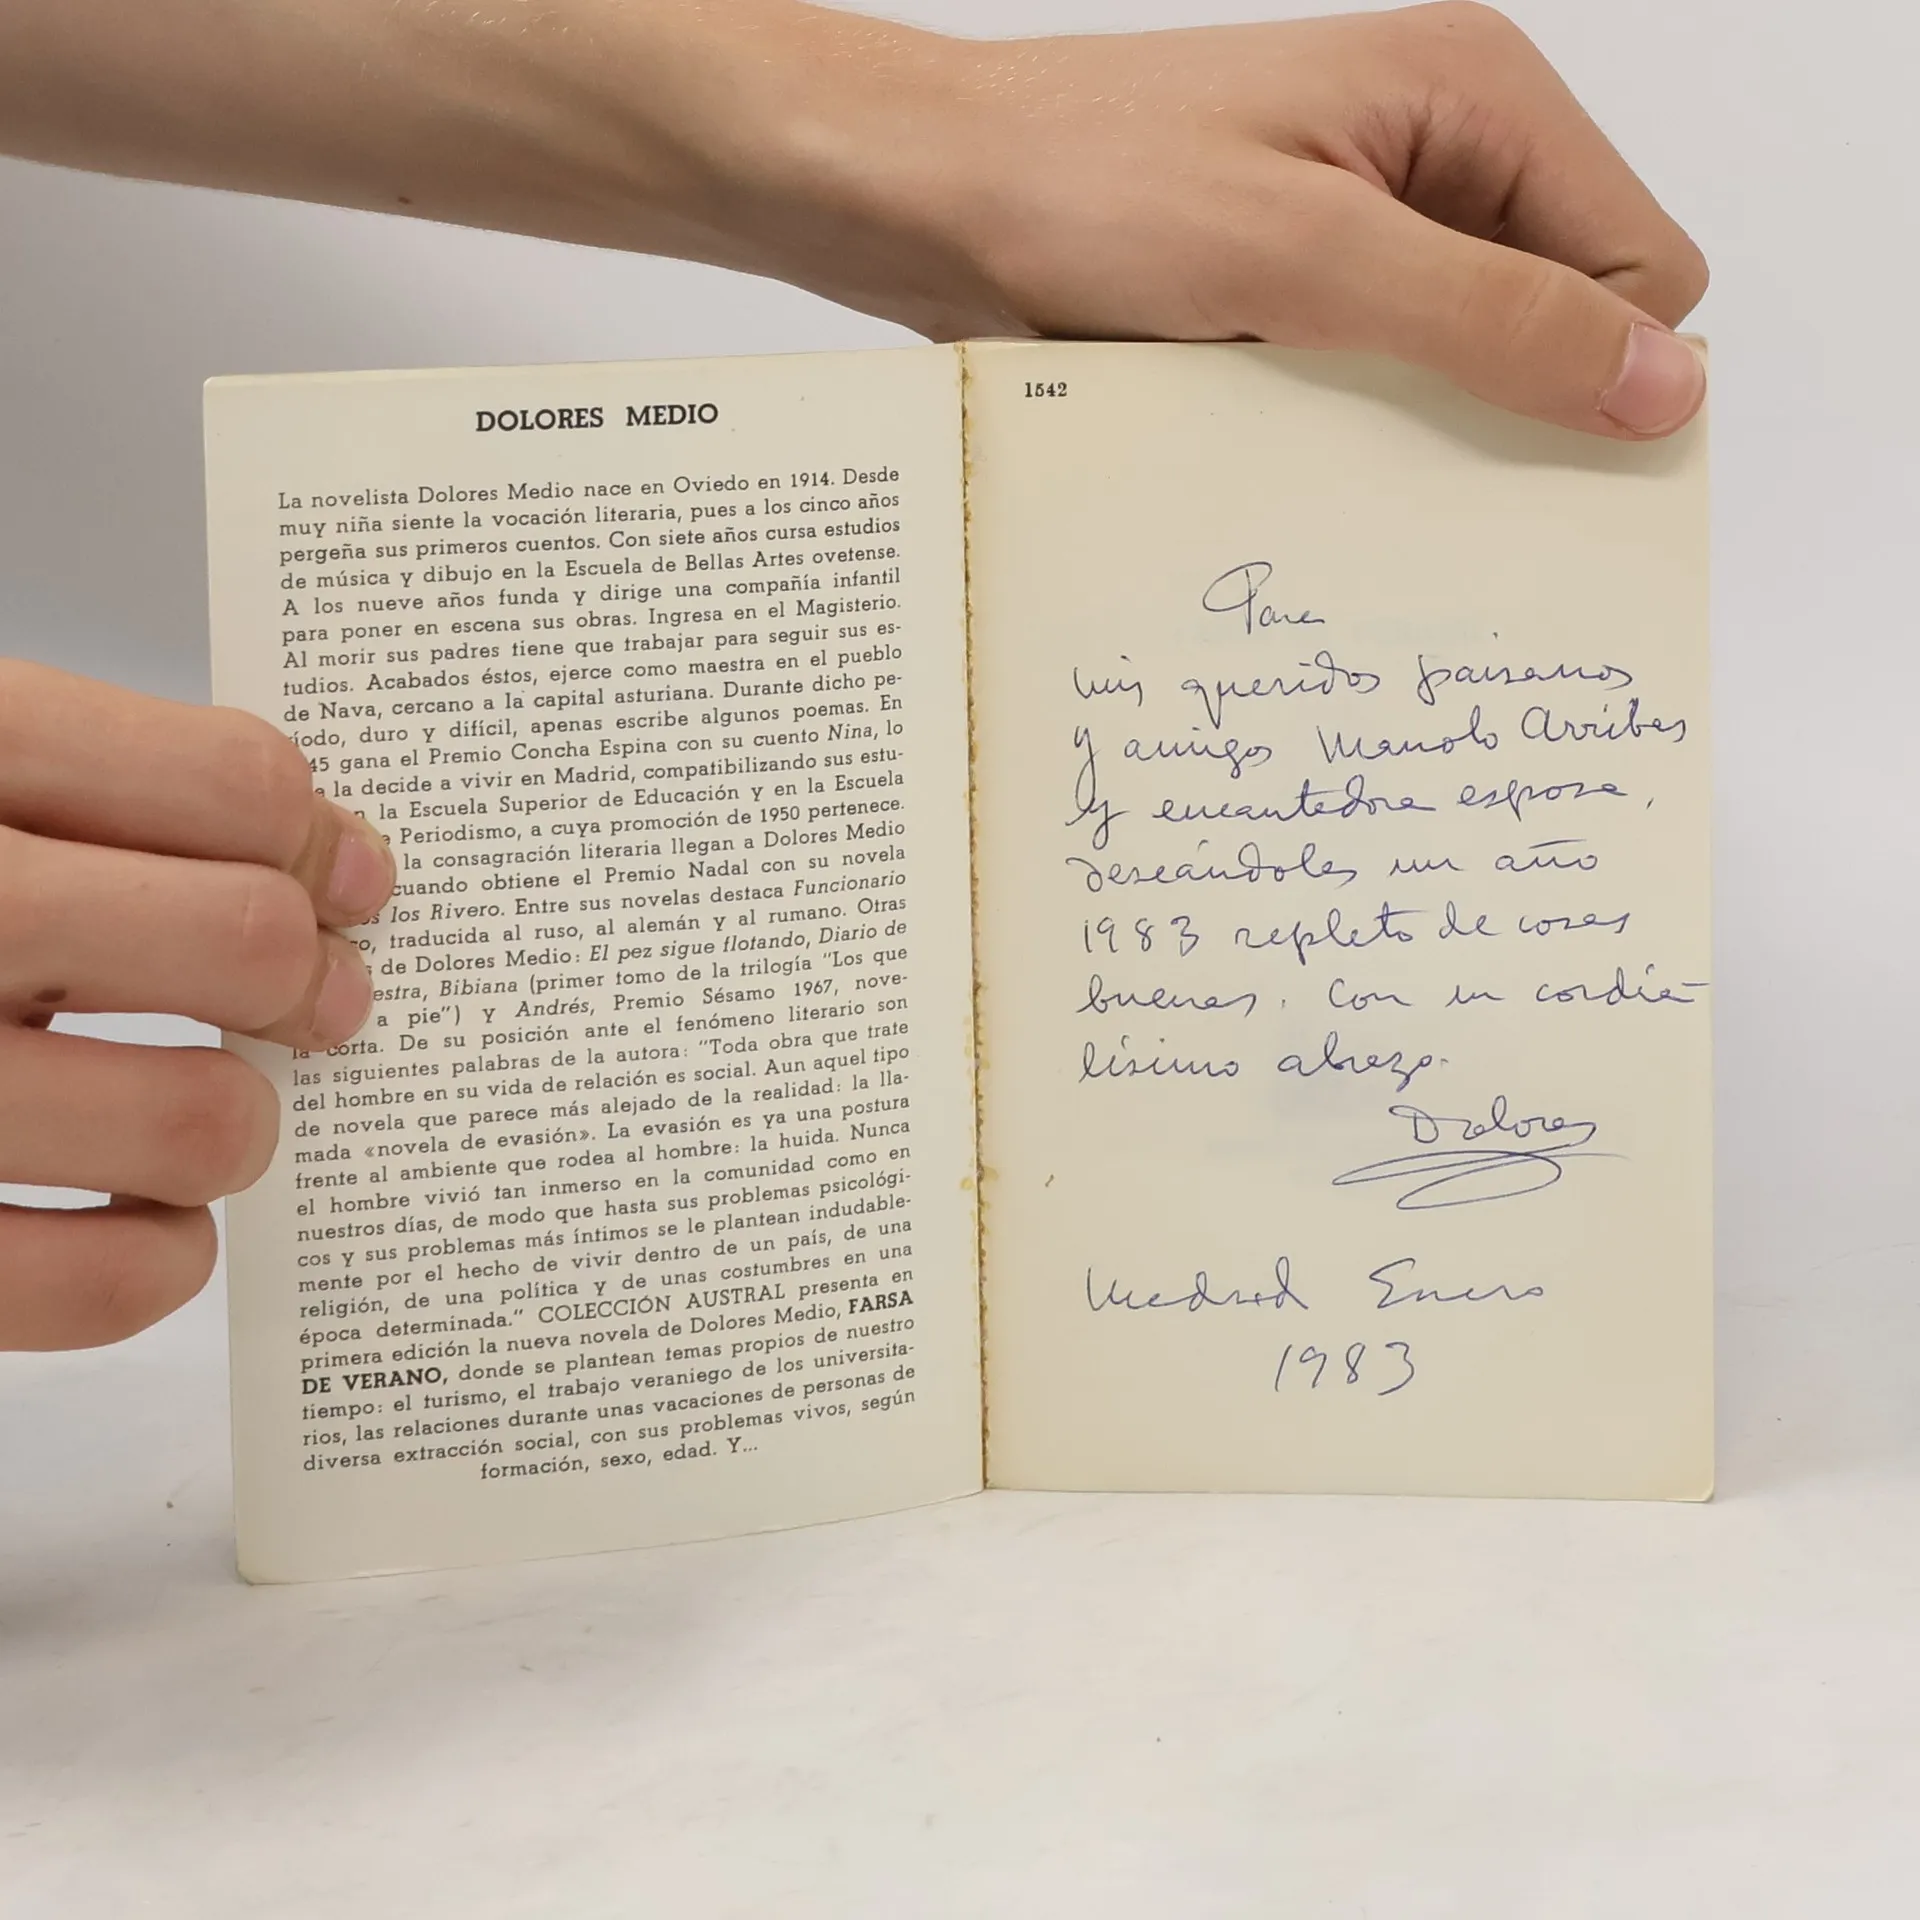 DOLORES MEDIO
La novelista Dolores Medio nace en Oviedo en 1914. Desde
muy niña siente la vocación literaria, pues a los cinco años
pergeña sus primeros cuentos. Con siete años cursa estudios
de música y dibujo en la Escuela de Bellas Artes ovetense.
A los nueve años funda y dirige una compañía infantil
para poner en escena sus obras. Ingresa en el Magisterio.
Al morir sus padres tiene que trabajar para seguir sus es-
tudios. Acabados éstos, ejerce como maestra en el pueblo
de Nava, cercano a la capital asturiana. Durante dicho pe-
íodo, duro y difícil, apenas escribe algunos poemas. En
45 gana el Premio Concha Espina con su cuento Nina, lo
e la decide a vivir en Madrid, compatibilizando sus estu-
n la Escuela Superior de Educación y en la Escuela
e Periodismo, a cuya promoción de 1950 pertenece.
la consagración literaria llegan a Dolores Medio
cuando obtiene el Premio Nadal con su novela
s los Rivero. Entre sus novelas destaca Funcionario
co, traducida al ruso, al alemán y al rumano. Otras
s de Dolores Medio: El pez sigue flotando, Diario de
estra, Bibiana (primer tomo de la trilogía "Los que
a pie") y Andrés, Premio Sésamo 1967, nove-
la corta. De su posición ante el fenómeno literario son
las siguientes palabras de la autora: "Toda obra que trate
del hombre en su vida de relación es social. Aun aquel tipo
de novela que parece más alejado de la realidad: la lla-
mada «novela de evasión». La evasión es ya una postura
frente al ambiente que rodea al hombre: la huida. Nunca
el hombre vivió tan inmerso en la comunidad como en
nuestros días, de modo que hasta sus problemas psicológi-
cos y sus problemas más íntimos se le plantean indudable-
mente por el hecho de vivir dentro de un país, de una
religión, de una política y de unas costumbres en una
época determinada." COLECCIÓN AUSTRAL presenta en
primera edición la nueva novela de Dolores Medio, FARSA
DE VERANO, donde se plantean temas propios de nuestro
tiempo: el turismo, el trabajo veraniego de los universita-
rios, las relaciones durante unas vacaciones de personas de
diversa extracción social, con sus problemas vivos, según
formación, sexo, edad. Y...
1542
Para
mis queridos paisanos
y amigos Manolo Arribas
y encantadora esposa,
deseándoles un año
1983 repleto de cosas
buenas. Con un cordia-
lísimo abrazo.
Dolores
Madrid Enero
1983